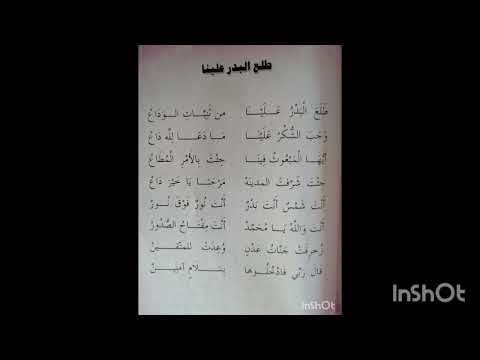 طلع البدر علينا
طَلَعَ الْبَدْرُ عَلَيْنَا من ثَنِيَّاتِ الــوَدَاعْ
وَجَبَ الشُّكْرُ عَلَيْنَا مَا دَعَا لِلَّهِ دَاعْ
أَيُّهَا الْمَبْعُوثُ فِينَا جِئْتَ بِالأَمْرِ الْمُطَاعْ
جِئْتَ شَرَّفْتَ المدينة مَرْحَبًا يَا خَيْرَ دَاعْ
أَنْتَ شَمْسٌ أَنْتَ بَدْرٌ أَنْتَ نُورٌ فَوْقَ نُورْ
أَنْتَ وَاللَّهِ يَا مُحَمَّدْ أَنْتَ مِفْتَاحُ الصُّدُورْ
زُخْرِفَتْ جَنَّاتُ عَدْنٍ وُعِدَتْ للمتقين
قَالَ رَبِّي فَادْخُلُوها بِسَلاَمٍ آمِنِينْ
InShOt
InShOt